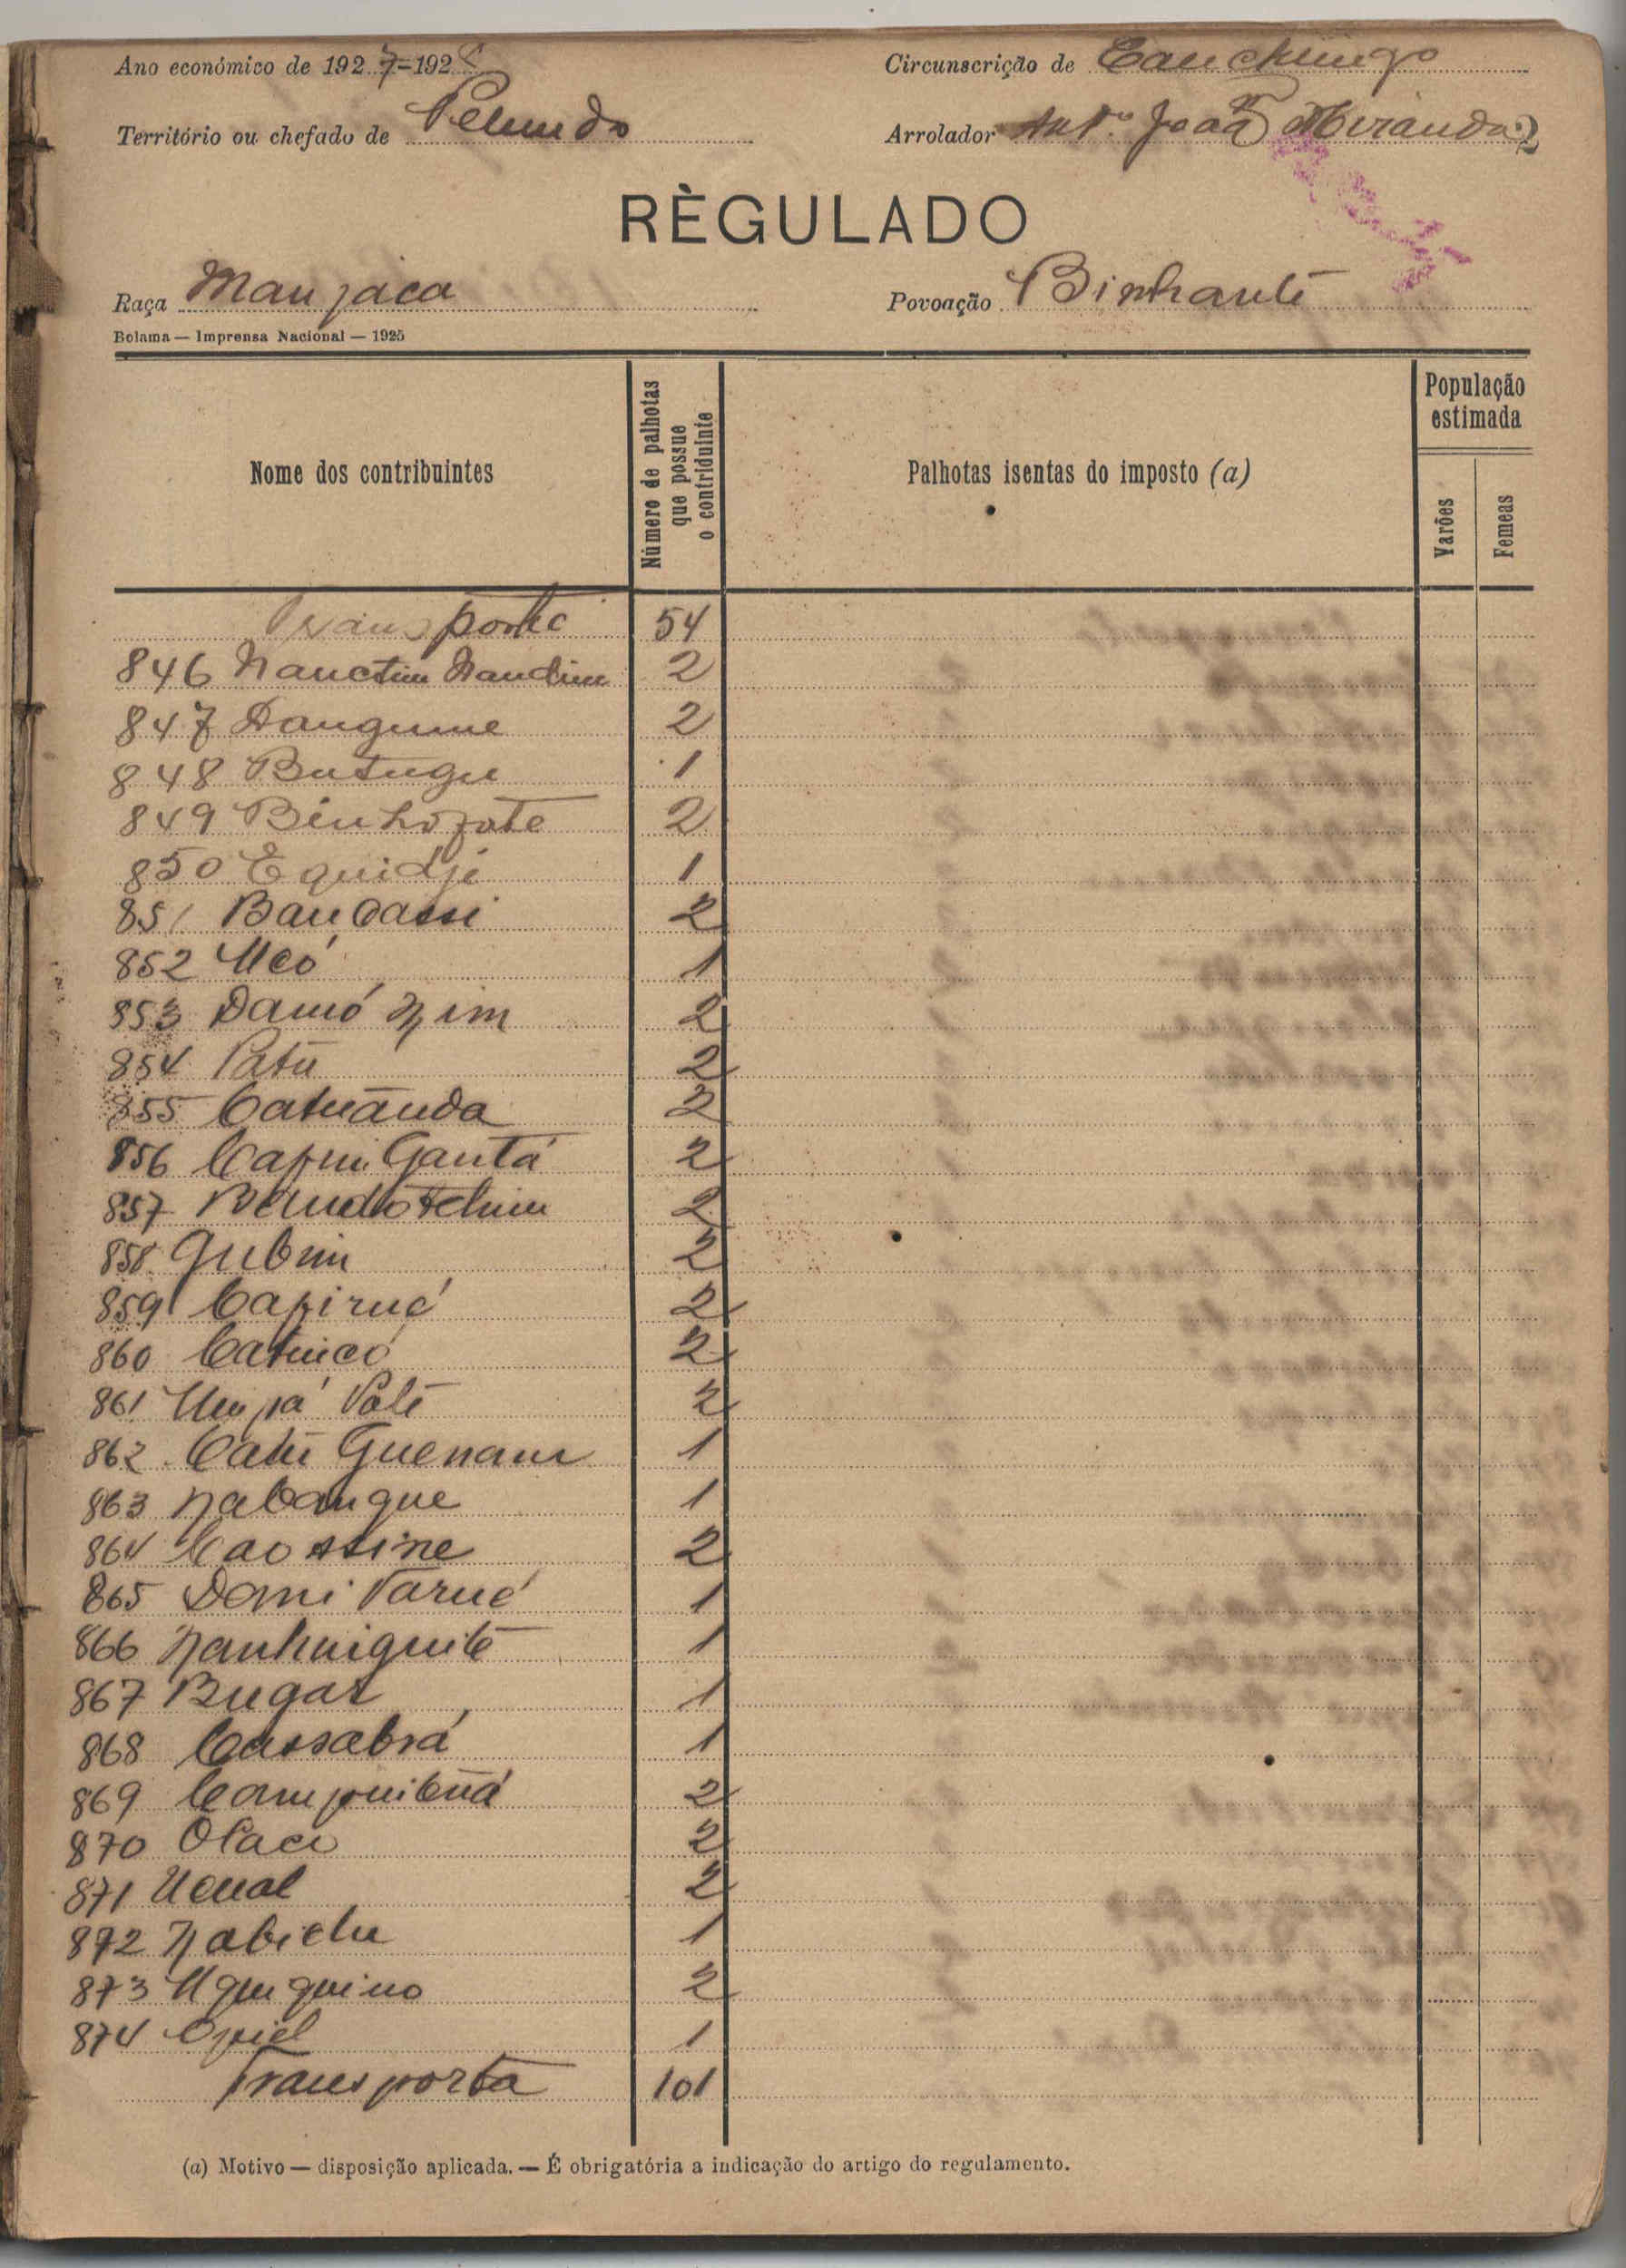 Ano económico de 1927-192
Circunscrição de Canchungo
Território ou chefado de Pelundo
Arrolador Antº João Miranda 2
RÈGULADO
Raça Manjaca
Povoação Binhante
Bolama — Imprensa Nacional — 1925
Nome dos contribuintes
Número de palhotas que possue o contriduinte
Palhotas isentas do imposto (a)
População estimada
Varões
Femeas
Transporte 54
846 2
847 Dangume 2
848 Butugu 1
849 2
850 Equidjé 1
851 Bancassi 2
852 Ucó 1
853 Damó 2
854 Patu 2
855 Catuanda 2
856 Gantá 2
857 2
858 Gubim 2
859 Capirué 2
860 Catuicó 2
861 2
862 Catu Guenam 1
863 Nabangue 1
864 2
865 Domi Varué 1
866 Nanhuiguité 1
867 Bugar 1
868 Cassabrá 1
869 2
870 Olaco 2
871 Ucual 2
872 Nabietu 1
873 Uquiquino 2
874 1
Transporta 101
(a) Motivo — disposição aplicada. — É obrigatória a indicação do artigo do regulamento.